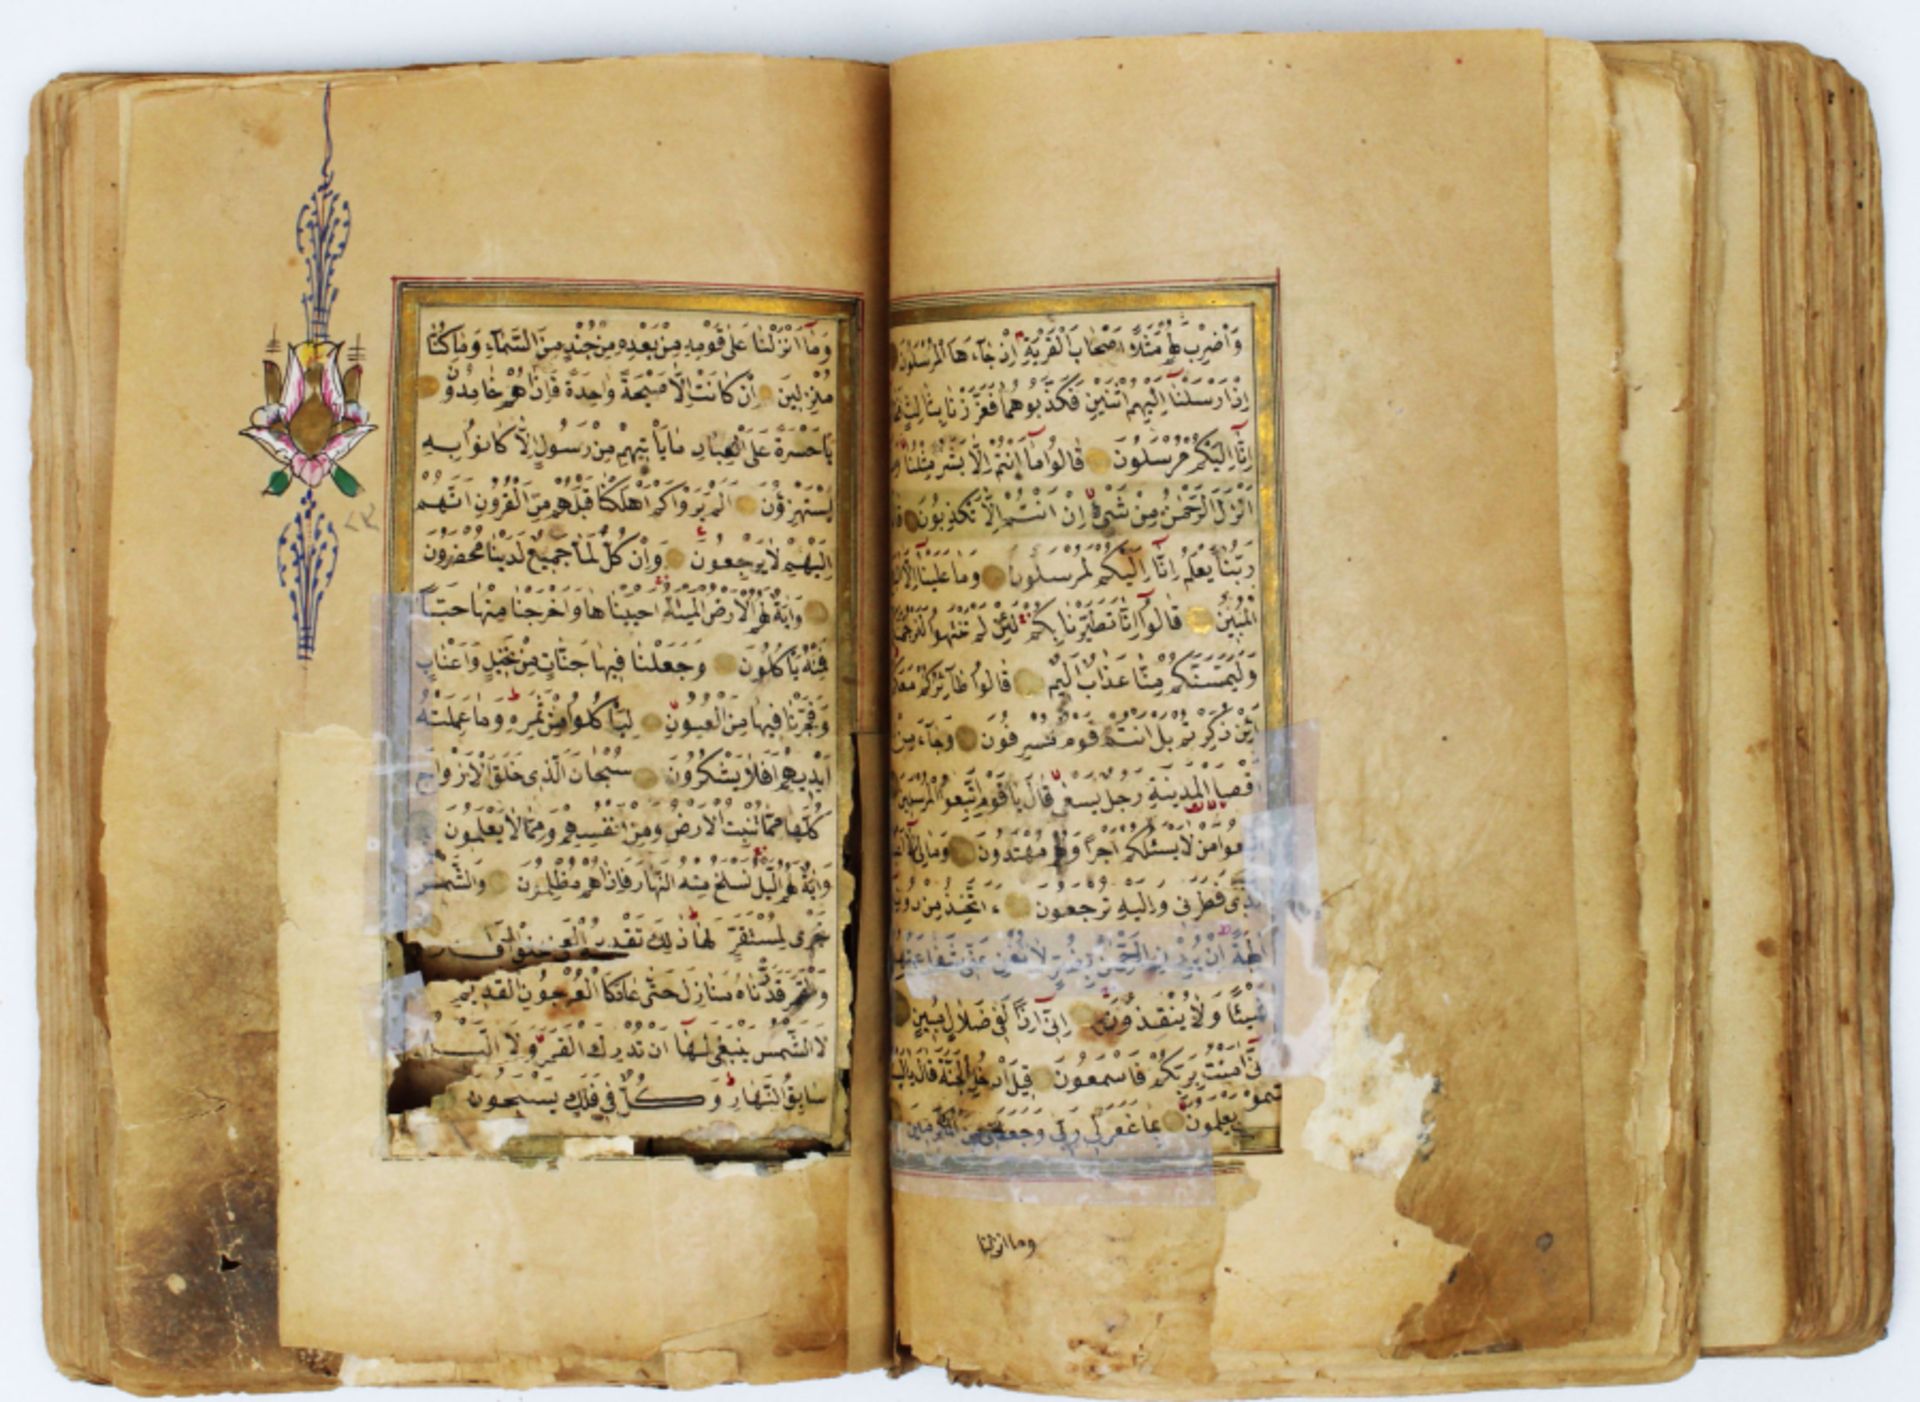 وَاضْرِبْ لَهُمْ مَثَلًا اَصْحَابَ الْقَرْيَةِ اِذْ جَاءَهَا الْمُرْسَلُونَ
اِذْ اَرْسَلْنَا اِلَيْهِمُ اثْنَيْنِ فَكَذَّبُوهُمَا فَعَزَّزْنَا بِثَالِثٍ
اِنَّا اِلَيْكُمْ مُرْسَلُونَ قَالُوا مَا اَنْتُمْ اِلَّا بَشَرٌ مِثْلُنَا
اَنْزَلَ الرَّحْمٰنُ مِنْ شَيْءٍ اِنْ اَنْتُمْ اِلَّا تَكْذِبُونَ
رَبُّنَا يَعْلَمُ اِنَّا اِلَيْكُمْ لَمُرْسَلُونَ وَمَا عَلَيْنَا اِلَّا
الْمُبِينُ قَالُوا اِنَّا تَطَيَّرْنَا بِكُمْ لَئِنْ لَمْ تَنْتَهُوا
وَلَيَمَسَّنَّكُمْ مِنَّا عَذَابٌ اَلِيمٌ قَالُوا طَائِرُكُمْ
اَئِنْ ذُكِّرْتُمْ بَلْ اَنْتُمْ قَوْمٌ مُسْرِفُونَ وَجَاءَ مِنْ
اَقْصَا الْمَدِينَةِ رَجُلٌ يَسْعٰى قَالَ يَا قَوْمِ اتَّبِعُوا الْمُرْسَلِينَ
مَنْ لَا يَسْئَلُكُمْ اَجْرًا وَهُمْ مُهْتَدُونَ وَمَا لِيَ لَا
فَطَرَنِي وَاِلَيْهِ تُرْجَعُونَ ءَاَتَّخِذُ مِنْ
اٰلِهَةً اِنْ يُرِدْنِ الرَّحْمٰنُ بِضُرٍّ لَا تُغْنِ عَنِّي شَفَاعَتُهُمْ
شَيْئًا وَلَا يُنْقِذُونِ اِنِّي اِذًا لَفِي ضَلَالٍ مُبِينٍ
اِنِّي اٰمَنْتُ بِرَبِّكُمْ فَاسْمَعُونِ قِيلَ ادْخُلِ الْجَنَّةَ قَالَ
يَعْلَمُونَ بِمَا غَفَرَ لِي رَبِّي وَجَعَلَنِي مِنَ الْمُكْرَمِينَ
وما انزلنا
وَمَا اَنْزَلْنَا عَلٰى قَوْمِهِ مِنْ بَعْدِهِ مِنْ جُنْدٍ مِنَ السَّمَاءِ وَمَا كُنَّا
مُنْزِلِينَ اِنْ كَانَتْ اِلَّا صَيْحَةً وَاحِدَةً فَاِذَا هُمْ خَامِدُونَ
يَا حَسْرَةً عَلَى الْعِبَادِ مَا يَاْتِيهِمْ مِنْ رَسُولٍ اِلَّا كَانُوا بِهِ
يَسْتَهْزِؤُنَ اَلَمْ يَرَوْا كَمْ اَهْلَكْنَا قَبْلَهُمْ مِنَ الْقُرُونِ اَنَّهُمْ
اِلَيْهِمْ لَا يَرْجِعُونَ وَاِنْ كُلٌّ لَمَّا جَمِيعٌ لَدَيْنَا مُحْضَرُونَ
وَاٰيَةٌ لَهُمُ الْاَرْضُ الْمَيْتَةُ اَحْيَيْنَاهَا وَاَخْرَجْنَا مِنْهَا حَبًّا
فَمِنْهُ يَاْكُلُونَ وَجَعَلْنَا فِيهَا جَنَّاتٍ مِنْ نَخِيلٍ وَاَعْنَابٍ
وَفَجَّرْنَا فِيهَا مِنَ الْعُيُونِ لِيَاْكُلُوا مِنْ ثَمَرِهِ وَمَا عَمِلَتْهُ
اَيْدِيهِمْ اَفَلَا يَشْكُرُونَ سُبْحَانَ الَّذِي خَلَقَ الْاَزْوَاجَ
كُلَّهَا مِمَّا تُنْبِتُ الْاَرْضُ وَمِنْ اَنْفُسِهِمْ وَمِمَّا لَا يَعْلَمُونَ
وَاٰيَةٌ لَهُمُ الَّيْلُ نَسْلَخُ مِنْهُ النَّهَارَ فَاِذَا هُمْ مُظْلِمُونَ وَالشَّمْسُ
تَجْرِي لِمُسْتَقَرٍّ لَهَا ذٰلِكَ تَقْدِيرُ الْعَزِيزِ
وَالْقَمَرَ قَدَّرْنَاهُ مَنَازِلَ حَتّٰى عَادَ كَالْعُرْجُونِ الْقَدِيمِ
لَا الشَّمْسُ يَنْبَغِي لَهَا اَنْ تُدْرِكَ الْقَمَرَ وَلَا الَّيْلُ
سَابِقُ النَّهَارِ وَكُلٌّ فِي فَلَكٍ يَسْبَحُونَ